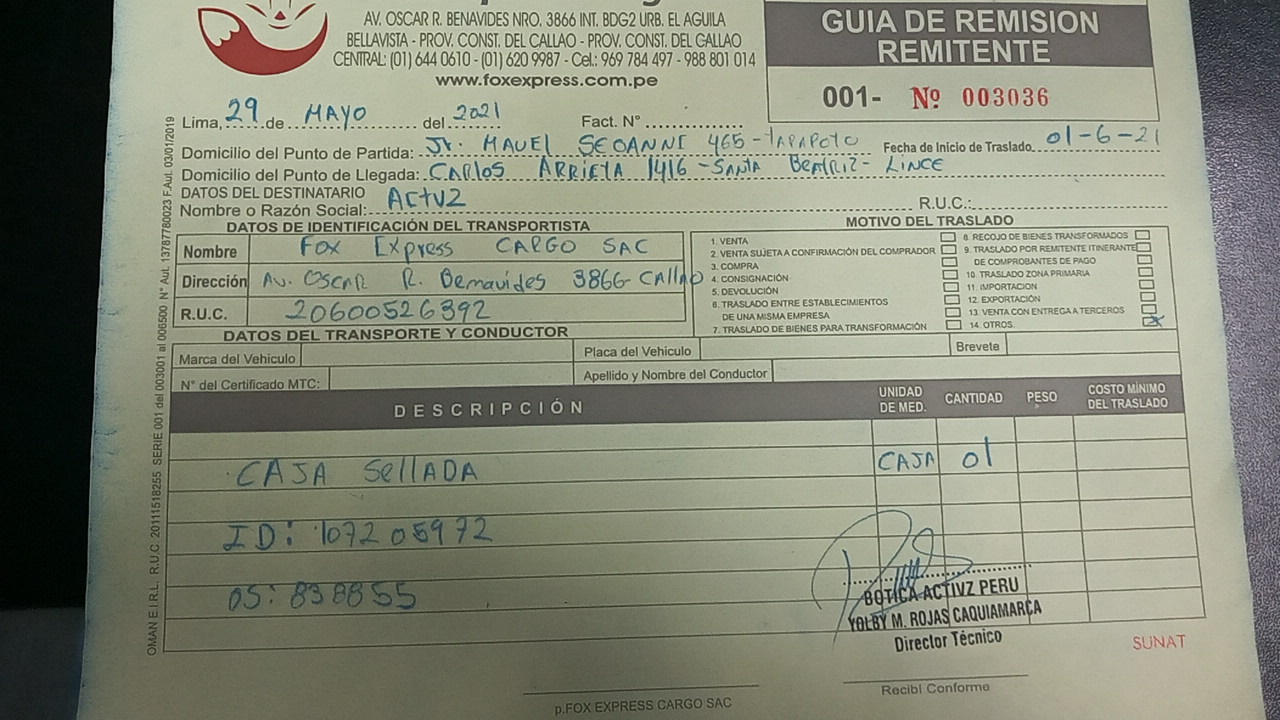 AV. OSCAR R. BENAVIDES NRO. 3866 INT. BDG2 URB. EL AGUILA
BELLAVISTA - PROV. CONST. DEL CALLAO - PROV. CONST. DEL CALLAO
CENTRAL: (01) 644 0610 - (01) 620 9987 - Cel.: 969 784 497 - 988 801 014
www.foxexpress.com.pe
GUIA DE REMISION
REMITENTE
001- Nº 003036
Lima, 29 de MAYO del 2021 Fact. N°
Domicilio del Punto de Partida: Jr. MAUEL SEOANNE 465 - TARAPOTO Fecha de Inicio de Traslado. 01-6-21
Domicilio del Punto de Llegada: CARLOS ARRIETA 1416 - SANTA BEATRIZ - LINCE
DATOS DEL DESTINATARIO
Nombre o Razón Social: ACTVZ R.U.C.:
DATOS DE IDENTIFICACIÓN DEL TRANSPORTISTA
Nombre FOX Express CARGO SAC
Dirección Av. OSCAR R. Bemavides 3866-CAllAO
R.U.C. 20600526392
MOTIVO DEL TRASLADO
1. VENTA
2. VENTA SUJETA A CONFIRMACIÓN DEL COMPRADOR
3. COMPRA
4. CONSIGNACIÓN
5. DEVOLUCIÓN
6. TRASLADO ENTRE ESTABLECIMIENTOS
DE UNA MISMA EMPRESA
7. TRASLADO DE BIENES PARA TRANSFORMACIÓN
8. RECOJO DE BIENES TRANSFORMADOS
9. TRASLADO POR REMITENTE ITINERANTE
DE COMPROBANTES DE PAGO
10. TRASLADO ZONA PRIMARIA
11. IMPORTACION
12. EXPORTACIÓN
13. VENTA CON ENTREGA A TERCEROS
14. OTROS. X
DATOS DEL TRANSPORTE Y CONDUCTOR
Marca del Vehiculo Placa del Vehiculo Brevete
N° del Certificado MTC: Apellido y Nombre del Conductor
DESCRIPCIÓN UNIDAD DE MED. CANTIDAD PESO COSTO MÍNIMO DEL TRASLADO
CAJA SellADA CAJA 01
ID: 107205972
OS: 838855
BOTICA ACTIVZ PERU
YOLBY M. ROJAS CAQUIAMARCA
Director Técnico
SUNAT
p.FOX EXPRESS CARGO SAC
Recibí Conforme
OMAN E.I.R.L. R.U.C. 20111518255 SERIE 001 del 003001 al 006500 N° Aut. 13787780023 F.Aut. 03/01/2019